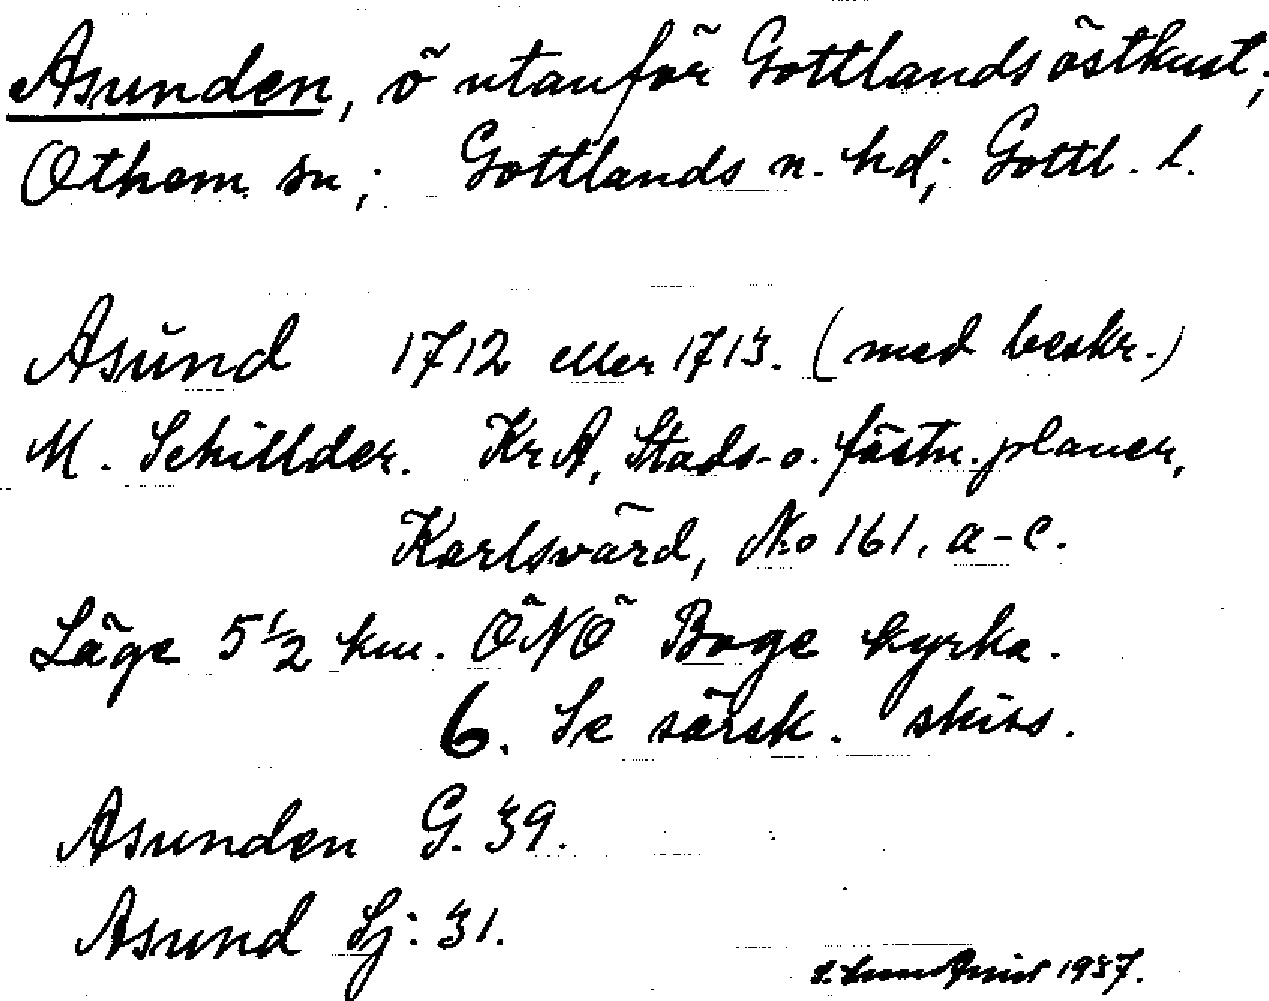 Asunden, ö utanför Gottlands östkust;
Othem sn; Gottlands n. hd; Gottl. l.
Asŭnd 1712 eller 1713. (med beskr.)
M. Schillder. KrA, Stads- o. fästn. planer,
Karlsvärd, No 161. a-c.
Läge 5 1/2 km. ÖNÖ Boge kyrka.
6. Se särsk. skiss.
Asunden G. 39.
Asund Sj: 31.
1937.